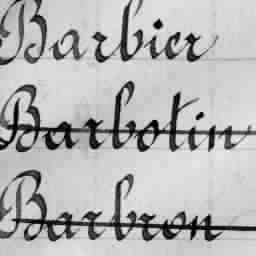 Barbier
Barbotin
Barbron